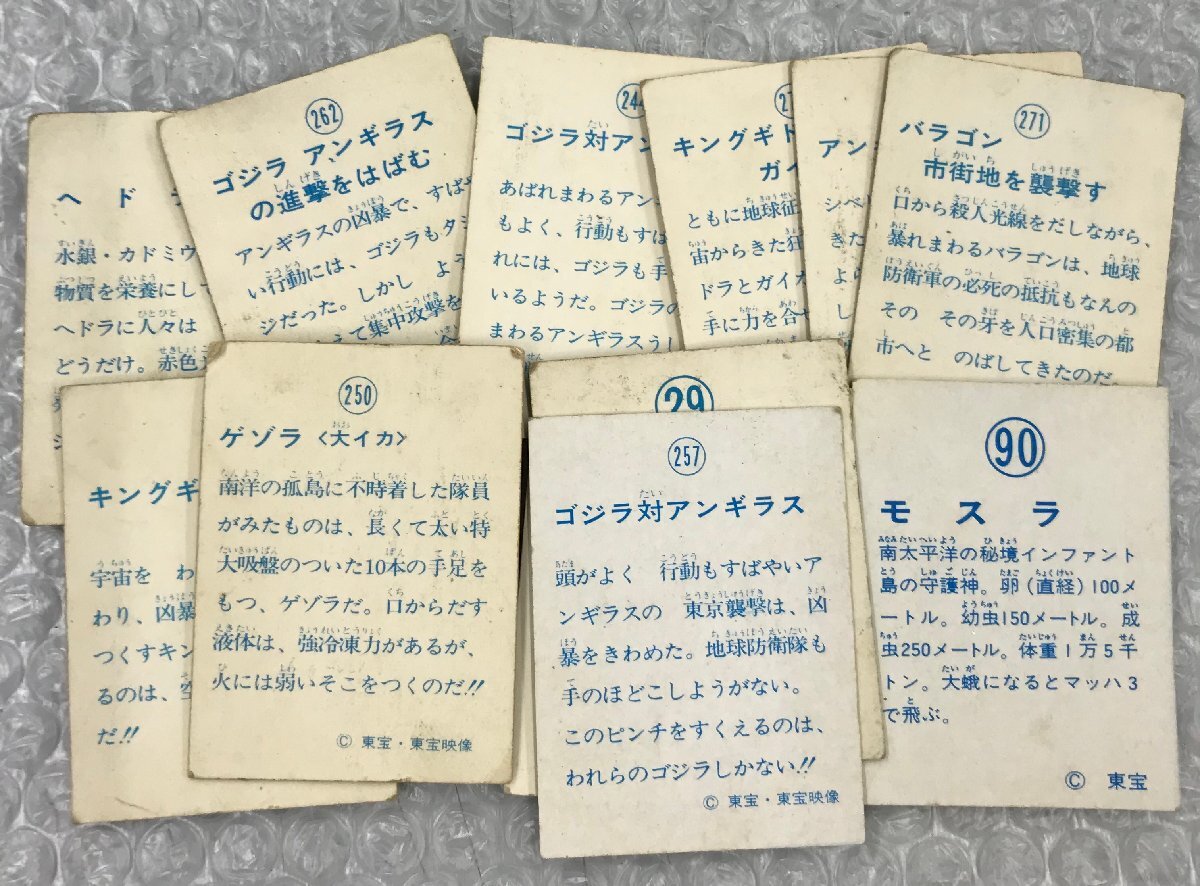 ヘド
水銀・カドミウ
物質を栄養にして
ヘドラに人々は
どうだけ。赤色
262
ゴジラ アンギラス
の進撃をはばむ
アンギラスの凶暴で、すばや
い行動には、ゴジラもタジ
ジだった。しかし よう
えて集中攻撃を
244
ゴジラ対アン
あばれまわるアン
もよく、行動もすば
れには、ゴジラも手
いるようだ。ゴジラの
まわるアンギラスうし
キングギド
ガイ
ともに地球征
宙からきた狂
ドラとガイガ
手に力を合せ
アン
シベ
きた
よら
し
271
バラゴン
市街地を襲撃す
口から殺人光線をだしながら、
暴れまわるバラゴンは、地球
防衛軍の必死の抵抗もなんの
その その牙を人口密集の都
市へと のばしてきたのだ。
キングギ
宇宙を わ
わり、凶暴
つくすキン
るのは、空
だ!!
250
ゲゾラ〈大イカ〉
南洋の孤島に不時着した隊員
がみたものは、長くて太い特
大吸盤のついた10本の手足を
もつ、ゲゾラだ。口からだす
液体は、強冷凍力があるが、
火には弱いそこをつくのだ!!
© 東宝・東宝映像
29
257
ゴジラ対アンギラス
頭がよく 行動もすばやいア
ンギラスの 東京襲撃は、凶
暴をきわめた。地球防衛隊も
手のほどこしようがない。
このピンチをすくえるのは、
われらのゴジラしかない!!
© 東宝・東宝映像
90
モスラ
南太平洋の秘境インファント
島の守護神。卵(直経)100メ
ートル。幼虫150メートル。成
虫250メートル。体重1万5千
トン。大蛾になるとマッハ3
で飛ぶ。
© 東宝